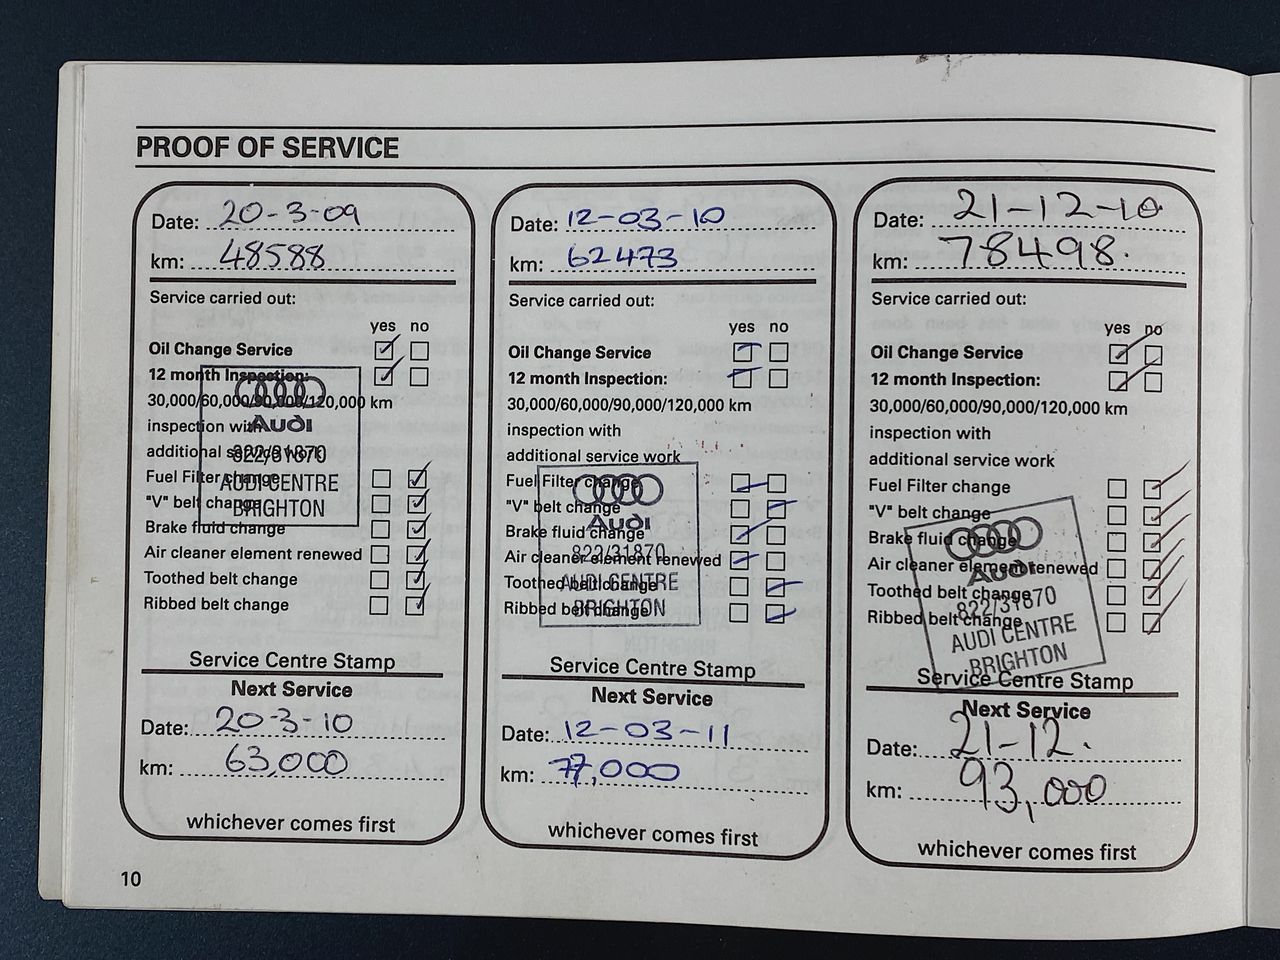 PROOF OF SERVICE
Date: 20-3-09
km: 48588
Service carried out:
yes no
Oil Change Service
12 month Inspection:
30,000/60,000/90,000/120,000 km
inspection with
additional service work
Fuel Filter change
"V" belt change
Brake fluid change
Air cleaner element renewed
Toothed belt change
Ribbed belt change
Audi
822/31870
AUDI CENTRE
BRIGHTON
Service Centre Stamp
Next Service
Date: 20-3-10
km: 63,000
whichever comes first
Date: 12-03-10
km: 62473
Service carried out:
yes no
Oil Change Service
12 month Inspection:
30,000/60,000/90,000/120,000 km
inspection with
additional service work
Fuel Filter change
"V" belt change
Brake fluid change
Air cleaner element renewed
Toothed belt change
Ribbed belt change
Audi
822/31870
AUDI CENTRE
BRIGHTON
Service Centre Stamp
Next Service
Date: 12-03-11
km: 77,000
whichever comes first
Date: 21-12-10
km: 78498.
Service carried out:
yes no
Oil Change Service
12 month Inspection:
30,000/60,000/90,000/120,000 km
inspection with
additional service work
Fuel Filter change
"V" belt change
Brake fluid change
Air cleaner element renewed
Toothed belt change
Ribbed belt change
Audi
822/31870
AUDI CENTRE
BRIGHTON
Service Centre Stamp
Next Service
Date: 21-12.
km: 93,000
whichever comes first
10